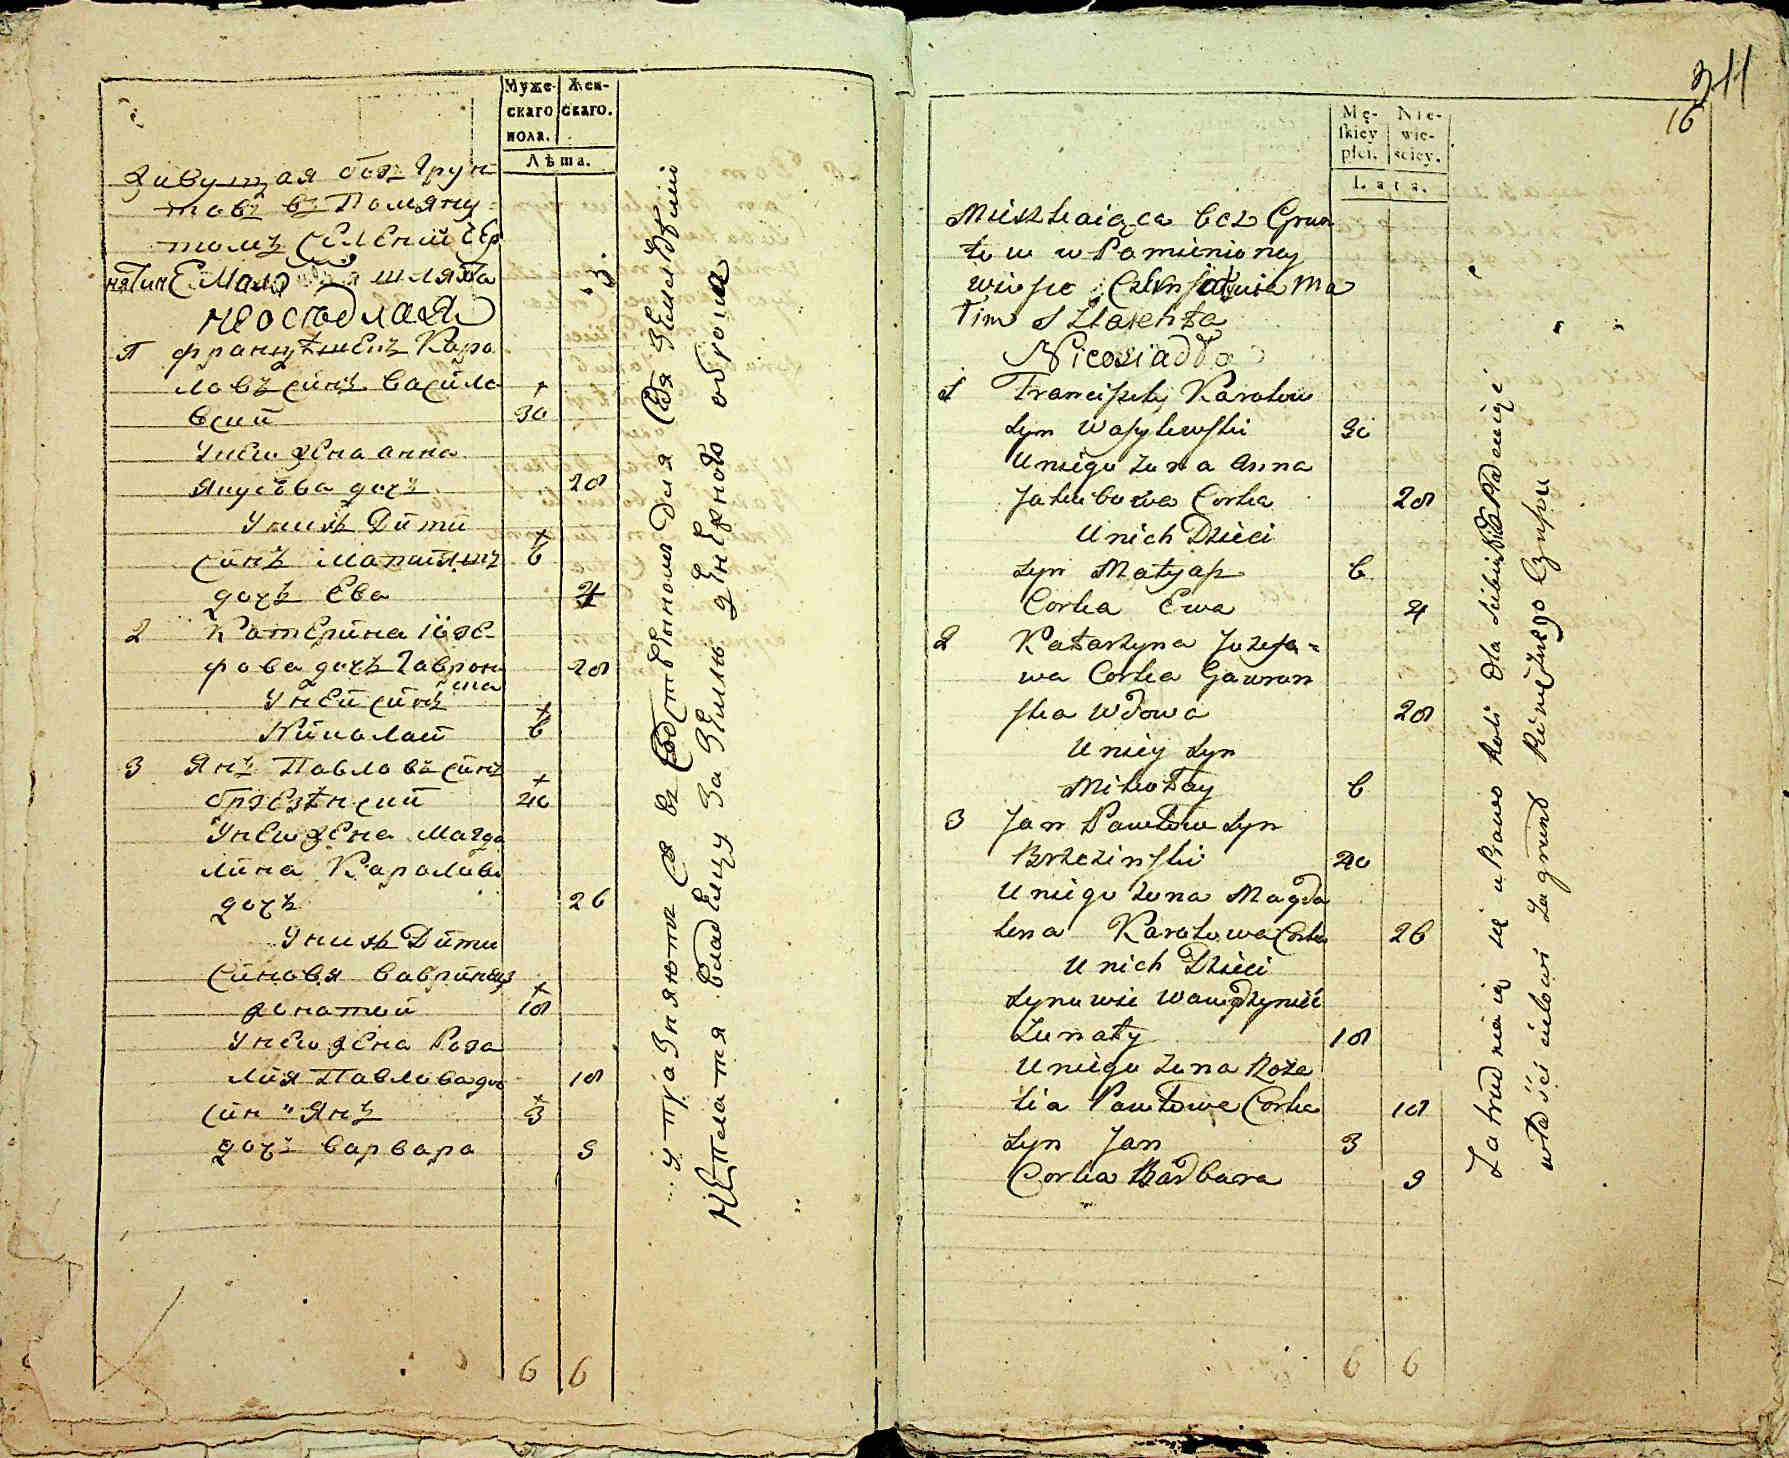 Муже- Жен-
скаго скаго.
пола.
Лѣта.
Живущая безъ Грун
товъ въ Помяну
томъ селений
шляхта
неоседлая
францѣшекъ Каро
ловъ синъ васило
вский 30
Унего жена анна
Якубова дочъ 28
Унихъ Дити
синъ матияшъ 6
дочъ Ева 4
2 Катерина іозе-
фова дочъ Гаврон
ска 28
Уней синъ
Николай 6
3 Янъ Павловъ синъ
бржезѣнский 40
Унего жена Магда
лина Каролова
дочъ 26
Унихъ Дити
Синовя вавринецъ
жонатий 18
Унего жена Роза
лия Павлова доч 18
син Янъ 3
дочъ варвара 9
6 6
упражняются въ собственном для себя земледѣлии
неплатя владелцу за Землю денежного оброка
311
16
Mę- Nie-
skiey wie-
płci. sciey.
Lata.
Mieszkaiąca bez Grun
tow w Pomienioney
wiosce
Szlachta
Nieosiadła
1 Franciszek Karolow
Syn Wasylewski 30
U niego Zona Anna
Jakubowa Corka 28
U nich Dzieci
Syn Matyasz 6
Corka Ewa 4
2 Katarzyna Jozefo-
wa Corka Gawron
ska Wdowa 28
U niey Syn
Mikołay 6
3 Jan Pawłow Syn
Brzezinski 40
U niego Zona Magda
lena Karolowa Corka 26
U nich Dzieci
Synowie Wawrzyniec
Zonaty 18
U niego Zona Roza
lia Pawłowa Corka 18
Syn Jan 3
Corka Barbara 9
6 6
Zatrudniaią się uprawą Roli dla siebie nie płacąc
właścicielowi za grunt Pieniężnego Czynszu